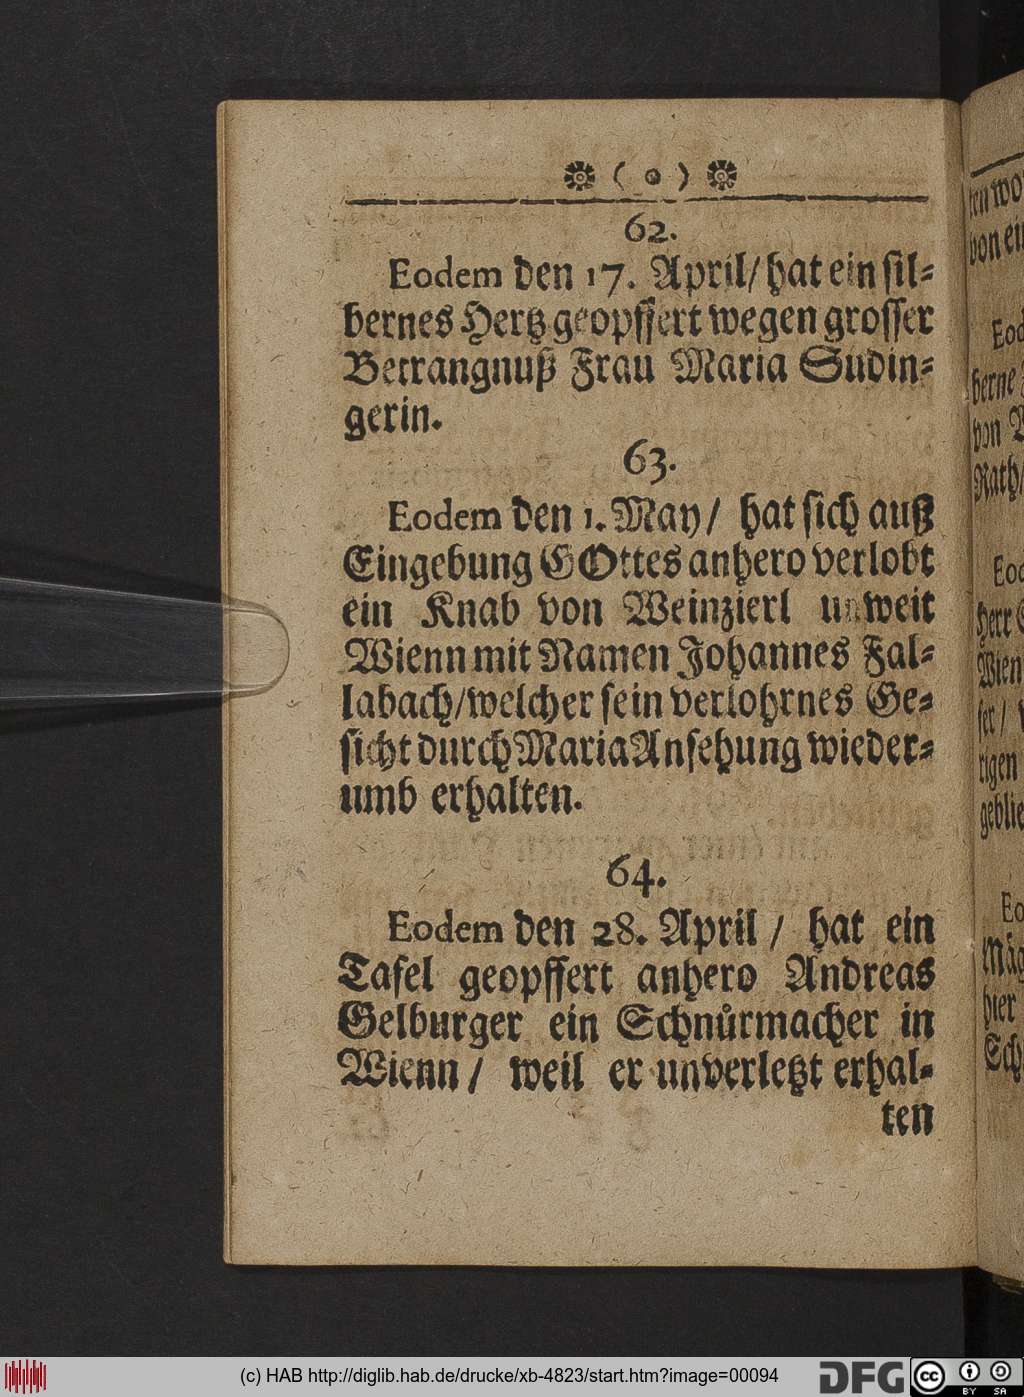 ( o )
62.
Eodem den 17. April/ hat ein sil-
bernes Hertz geopffert wegen grosser
Betrangnuß Frau Maria Sudin-
gerin.
63.
Eodem den 1. May/ hat sich auß
Eingebung GOttes anhero verlobt
ein Knab von Weinzierl unweit
Wienn mit Namen Johannes Fal-
labach/ welcher sein verlohrnes Ge-
sicht durch Maria Ansehung wieder-
umb erhalten.
64.
Eodem den 28. April/ hat ein
Tafel geopffert anhero Andreas
Gelburger ein Schnůrmacher in
Wienn/ weil er unverletzt erhal-
ten
von
Eod
berne
von
Rath/
Eod
Herr
Wien
rigen
geblie
Eo
Mäg
hier
Sch
(c) HAB http://diglib.hab.de/drucke/xb-4823/start.htm?image=00094
DFG
cc
BY SA